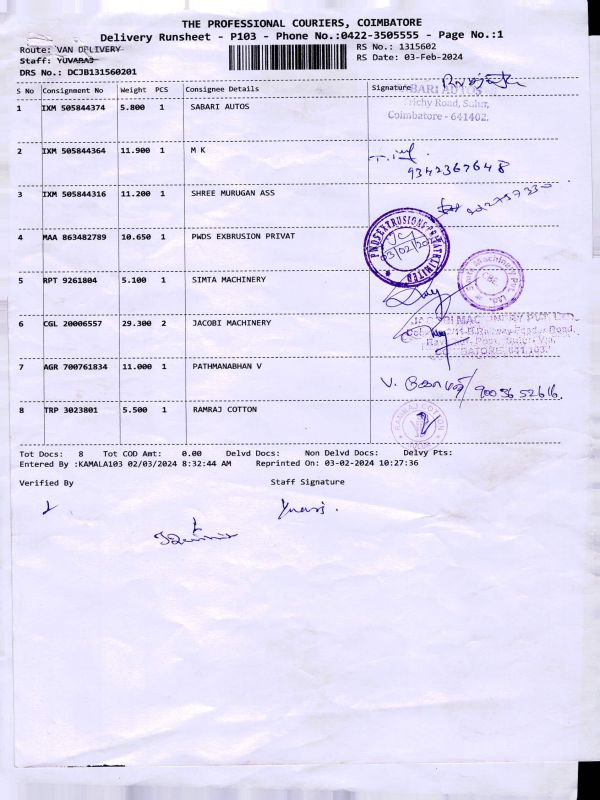 THE PROFESSIONAL COURIERS, COIMBATORE
Delivery Runsheet - P103 - Phone No.:0422-3505555 - Page No.:1
Route: VAN DELIVERY
RS No.: 1315602
Staff: YUVARAJ
RS Date: 03-Feb-2024
DRS No.: DCJB131560201
S No Consignment No Weight PCS Consignee Details Signature
1 IXM 505844374 5.800 1 SABARI AUTOS
SABARI AUTOS
Trichy Road, Sulur,
Coimbatore - 641402.
2 IXM 505844364 11.900 1 M K
9342367648
3 IXM 505844316 11.200 1 SHREE MURUGAN ASS
4 MAA 863482789 10.650 1 PWDS EXBRUSION PRIVAT
PWDS EXTRUSIONS PRIVATE LIMITED
03/02/2024
5 RPT 9261804 5.100 1 SIMTA MACHINERY
Simta Machinery Pvt. Ltd.
6 CGL 20006557 29.300 2 JACOBI MACHINERY
JACOBI MACHINERY PVT LTD.
Railway Feeder Road,
COIMBATORE 641 103.
7 AGR 700761834 11.000 1 PATHMANABHAN V
V.
9005652616.
8 TRP 3023801 5.500 1 RAMRAJ COTTON
RAMRAJ COTTON
Tot Docs: 8 Tot COD Amt: 0.00 Delvd Docs: Non Delvd Docs: Delvy Pts:
Entered By :KAMALA103 02/03/2024 8:32:44 AM Reprinted On: 03-02-2024 10:27:36
Verified By Staff Signature